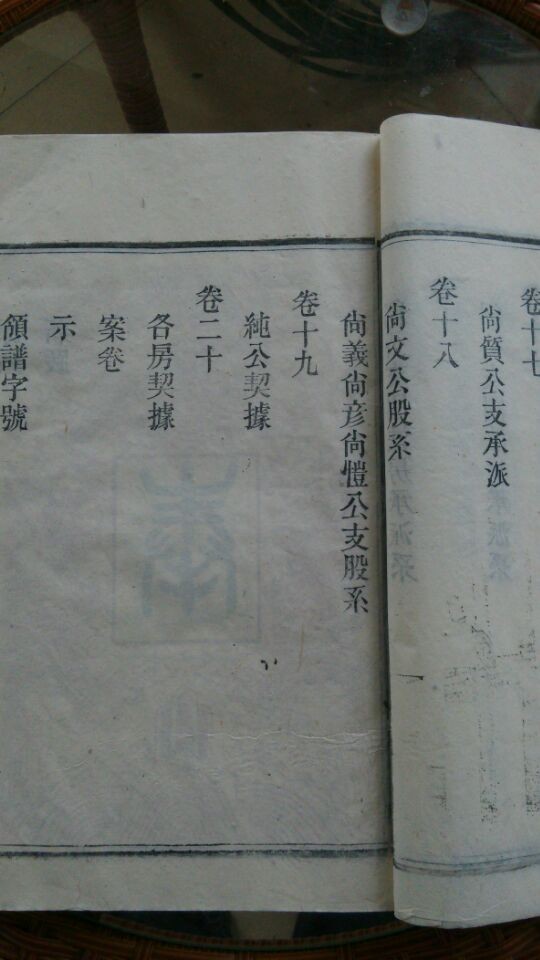 卷十七
尙質公支承派
卷十八
尙文公股系
尙義尙彦尙愷公支股系
卷十九
純公契據
卷二十
各房契據
案卷
示
領譜字號